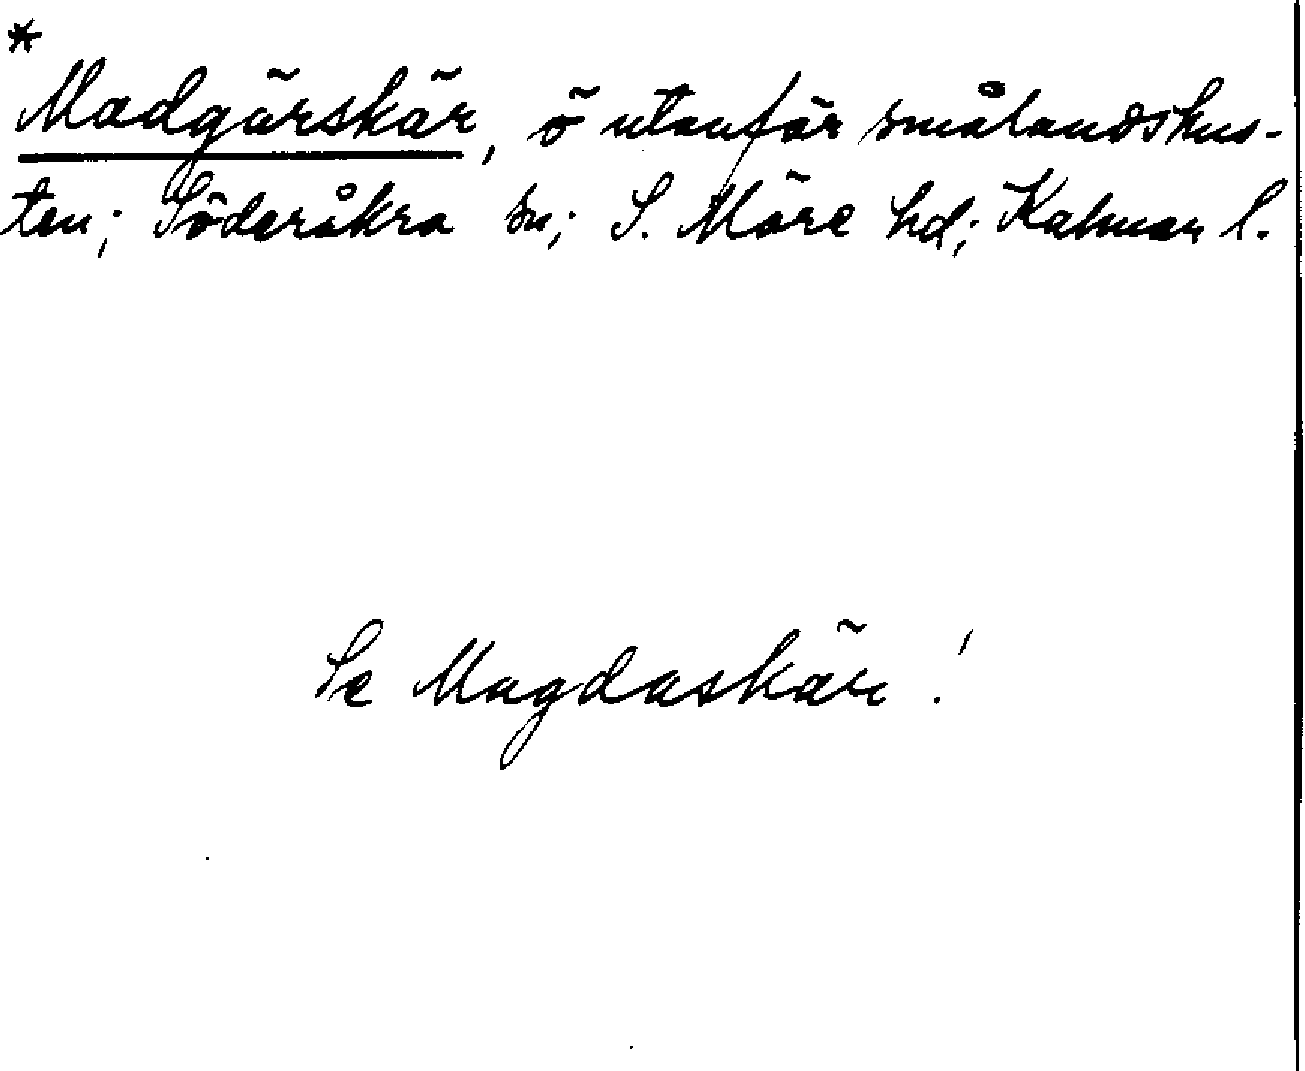 *
Madgärskär, ö utanför smålandskus-
ten; Söderåkra sn; S. Möre hd; Kalmar l.
Se Magdaskär!